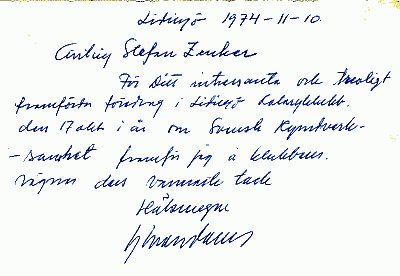 Lidingö 1974-11-10.
Stefan Zenker
För Ditt intressanta och trevligt
framförda föredrag i Lidingö Rotaryklubb
den 17 okt i år om Svensk Rymdverk-
-samhet framför jag å klubbens
vägnar den varmaste tack
Hälsningar